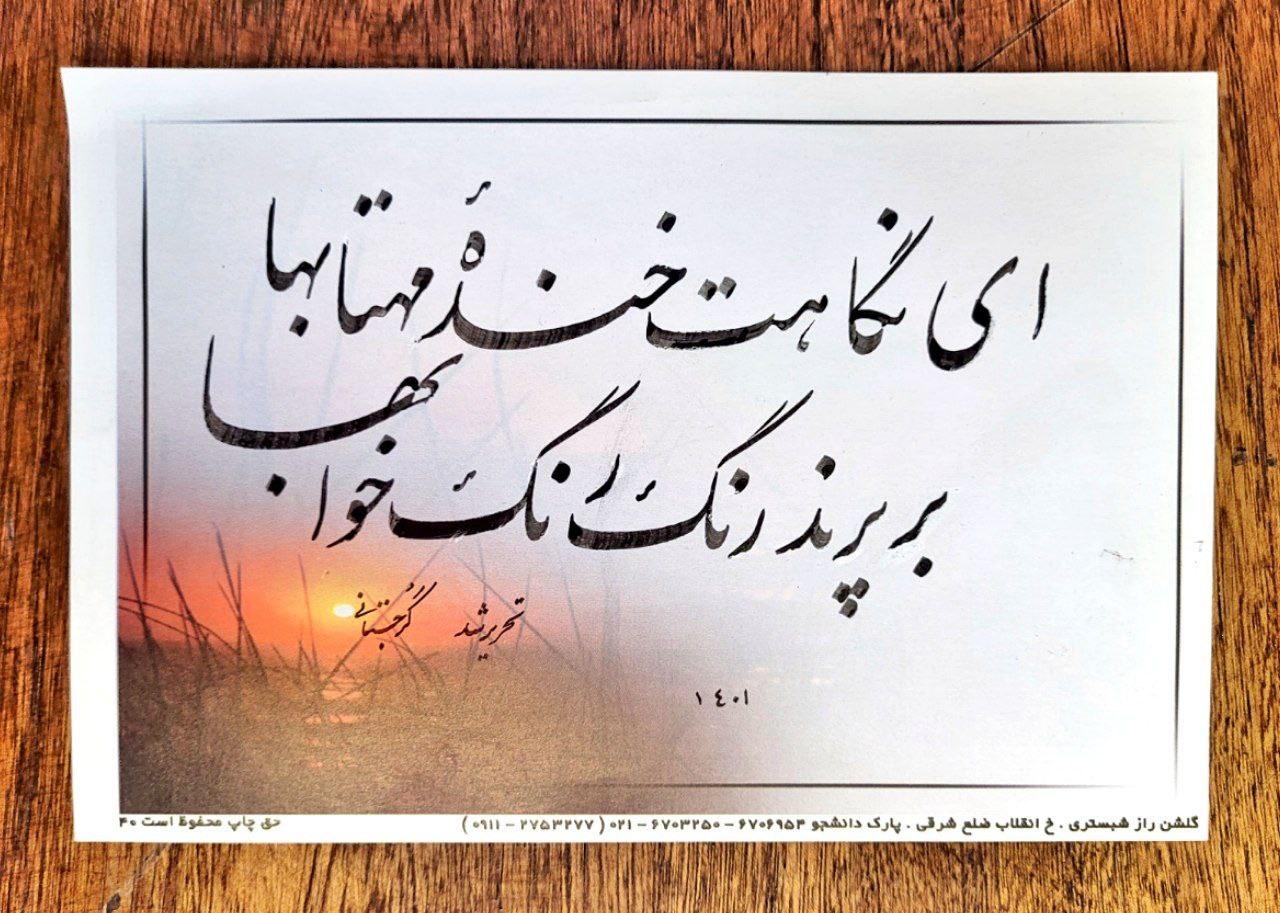 ای نگاهت خندهٔ مهتابها
بر پرند رنگ رنگ خوابها
تحریر شد گرجستانی
۱۴۰۱
گلشن راز شبستری . خ انقلاب ضلع شرقی . پارک دانشجو ۶۷۰۶۹۵۴ – ۶۷۰۳۲۵۰ – ۰۲۱ ( ۲۷۵۳۲۷۷ – ۰۹۱۱ ) حق چاپ محفوظ است ۴۰